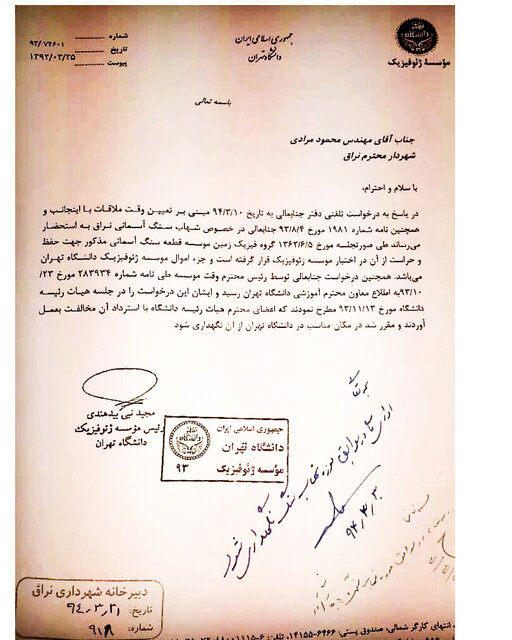 جمهوری اسلامی ایران
دانشگاه تهران
مؤسسهٔ ژئوفیزیک
شماره
تاریخ
پیوست
باسمه تعالی
جناب آقای مهندس محمود مرادی
شهردار محترم نراق
با سلام و احترام،
در پاسخ به درخواست تلفنی دفتر جنابعالی به تاریخ ۹۴/۳/۱۰ مبنی بر تعیین وقت ملاقات با اینجانب و
همچنین نامه شماره ۱۹۸۱ مورخ ۹۳/۸/۴ جنابعالی در خصوص شهاب سنگ آسمانی نراق به استحضار
می‌رساند طی صورتجلسه مورخ ۱۳۶۲/۶/۵ گروه فیزیک زمین موسسه قطعه سنگ آسمانی مذکور جهت حفظ
و حراست از آن در اختیار موسسه ژئوفیزیک قرار گرفته است و جزء اموال موسسه ژئوفیزیک دانشگاه تهران
می‌باشد. همچنین درخواست جنابعالی توسط رئیس محترم وقت موسسه طی نامه شماره ۲۸۳۹۳۴ مورخ ۲۳/
۹۳/۱۰به اطلاع معاون محترم آموزشی دانشگاه تهران رسید و ایشان این درخواست را در جلسه هیات رئیسه
دانشگاه مورخ ۹۳/۱۱/۱۳ مطرح نمودند که اعضای محترم هیات رئیسه دانشگاه با استرداد آن مخالفت بعمل
آوردند و مقرر شد در مکان مناسب در دانشگاه تهران از آن نگهداری شود.
مجید نبی بیدهندی
رئیس مؤسسه ژئوفیزیک
دانشگاه تهران
جمهوری اسلامی ایران
دانشگاه تهران
مؤسسه ژئوفیزیک
۹۳
نگهداری شود
دبیرخانه شهرداری نراق
تاریخ: ۹۴،۳،۲۱
شماره: ۹۱۸
انتهای کارگر شمالی، صندوق پستی: ۶۴۶۶-۱۴۱۵۵